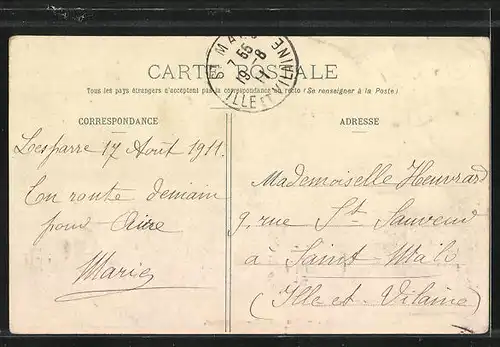 CARTE POSTALE
Tous les pays étrangers n'acceptent pas la correspondance au recto (Se renseigner à la Poste)
CORRESPONDANCE
Lesparre 17 Août 1911.
En route demain
pour Aire
Marie
ADRESSE
Mademoiselle Heuvrard
9, rue St Sauveur
à Saint-Malo
(Ille et Vilaine)
7 55
19-8
11
ILLE ET VILAINE